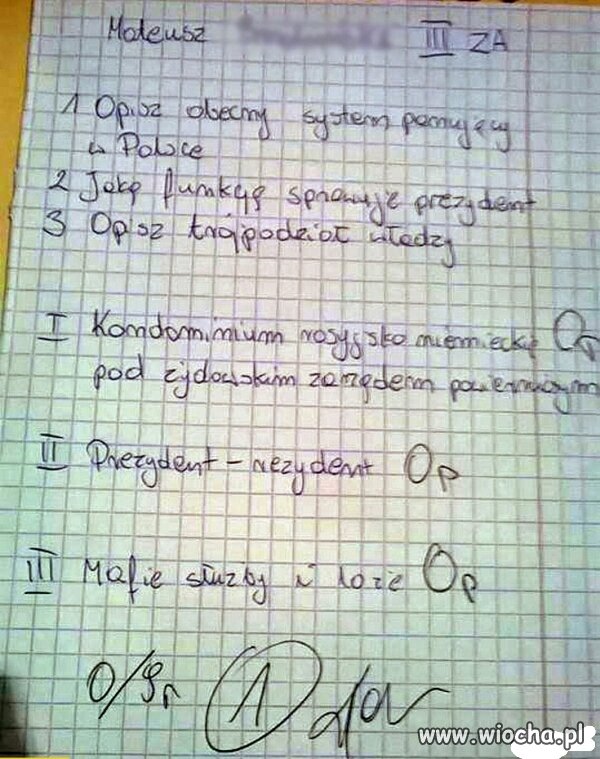 Mateusz III ZA
1 Opisz obecny system panujący
w Polsce
2 Jaką funkcję sprawuje prezydent
3 Opisz trójpodział władzy
I Kondominium rosyjsko niemieckie 0p
pod żydowskim zarządem powierniczym
II Prezydent - rezydent 0p
III Mafie służby i loże 0p
0/9p 1
www.wiocha.pl